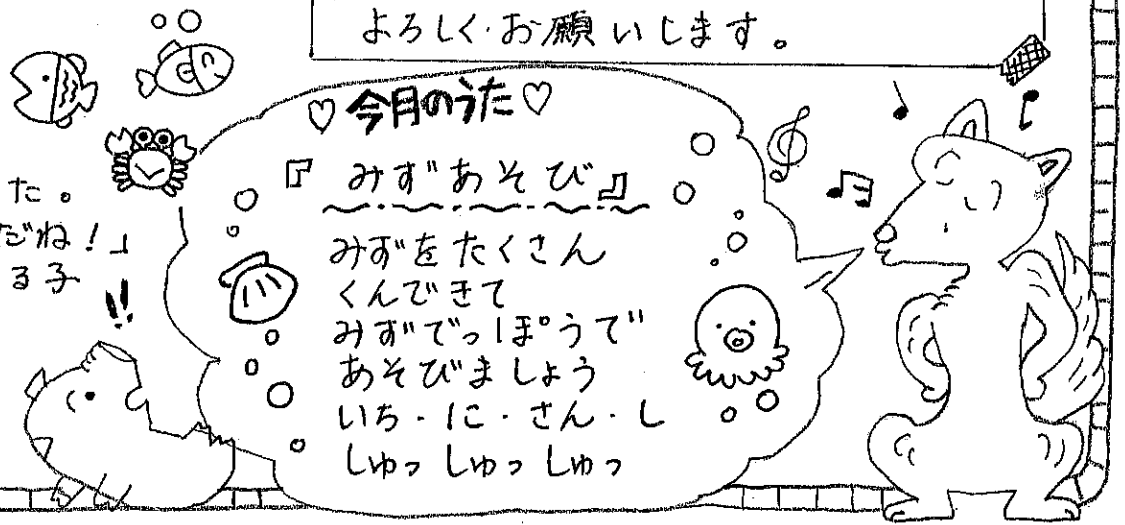 よろしく お願いします。
♡今月のうた♡
『みずあそび』
た。
だね!」
る子
!!
みずをたくさん
くんできて
みずでっぽうで
あそびましょう
いち・に・さん・し
しゅっ しゅっ しゅっ